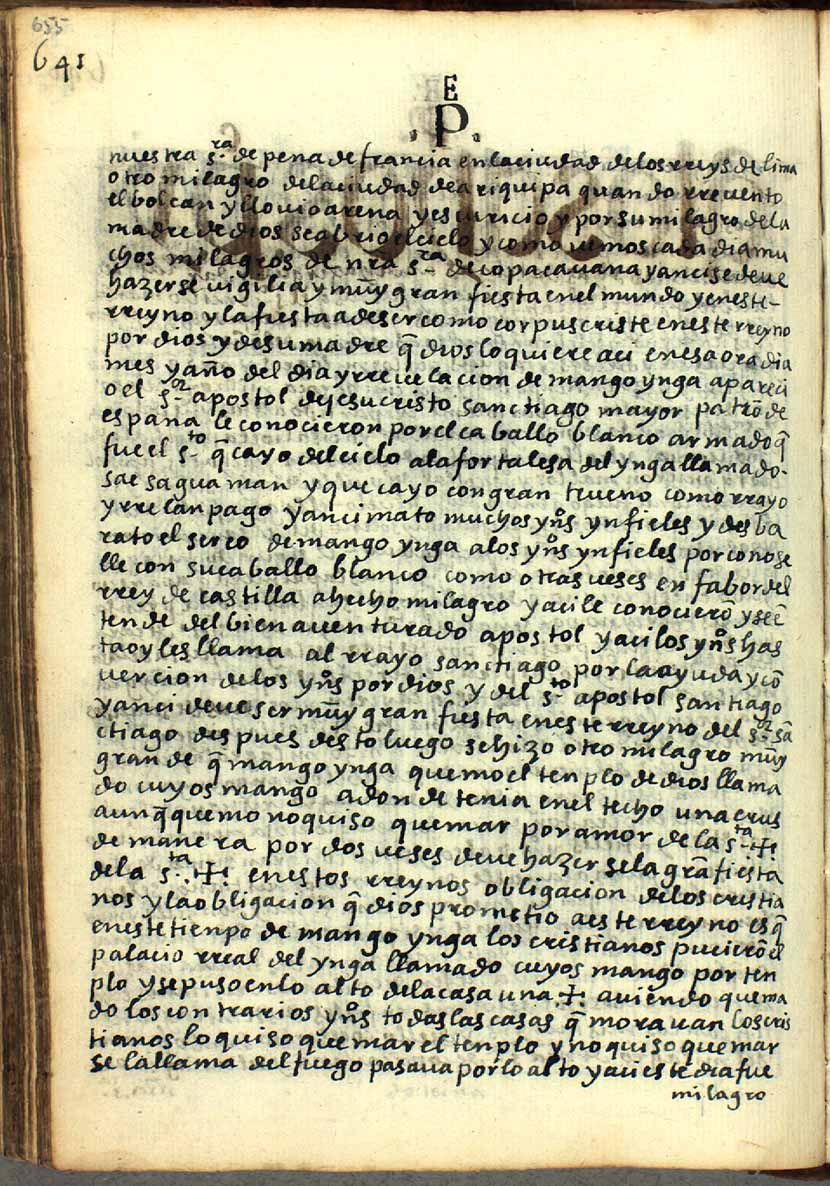 655
641
E
.P.
nuestra s.ra de pena de francia en la ciudad de los rreys de lima
otro milagro de la ciudad de ariquipa quando rrevento
el bolcan y llovio arena y escuricio y por su milagro de la
madre de dios se abrio el cielo y como vemos cada dia mu
chos milagros de nra s.ra de copacavana y anci se deve
hazerse vigilia y muy gran fiesta en el mundo y en este-
rreyno y la fiesta a de ser como corpus criste en este rreyno
por dios y de su madre q̃ dios lo quiere aci en esa ora dia
mes y año del dia y rrevelacion de mango ynga apareci
o el s.or apostol de jesucristo sanctiago mayor patrõ de
espana le conocieron por el caballo blanco armado q̃
fue el s.to q̃ cayo del cielo a la fortalesa del ynga llamado-
sacsaguaman y que cayo con gran trueno como rrayo
y rrelanpago y anci mato muchos yn̊s ynfieles y desba
rato el serco de mango ynga a los yn̊s ynfieles por conose
lle con su caballo blanco como otras veses en fabor del
rrey de castilla a hecho milagro y aci le conocierõ y se ẽ
tende del bienaventurado apostol y aci los yn̊s has
ta oy les llama al rrayo sanctiago por la ayuda y cõ
vercion de los yn̊s por dios y del s.to apostol santiago
y anci deve ser muy gran fiesta en este rreyno del s.or sã
ctiago despues desto luego se hizo otro milagro muy
grande q̃ mango ynga quemo el tenplo de dios llama
do cuyos mango adonde tenia en el techo una crus
aunq̃ quemo no quiso quemar por amor de la s.ta ✢:
de manera por dos veses deve hazerse la grã fiesta
de la s.ta ✢: en estos rreynos obligacion de los cristia
nos y la obligacion q̃ dios prometio a este rreyno es q̃
en este tienpo de mango ynga los cristianos pucierõ el
palacio rreal del ynga llamado cuyos mango por ten
plo y se puso en lo alto de la casa una ✢: aviendo quema
do los contrarios yn̊s todas las casas q̃ moravan los cris
tianos lo quiso quemar el tenplo y no quiso quemar
se la llama del fuego pasava por lo alto y aci este dia fue
milagro